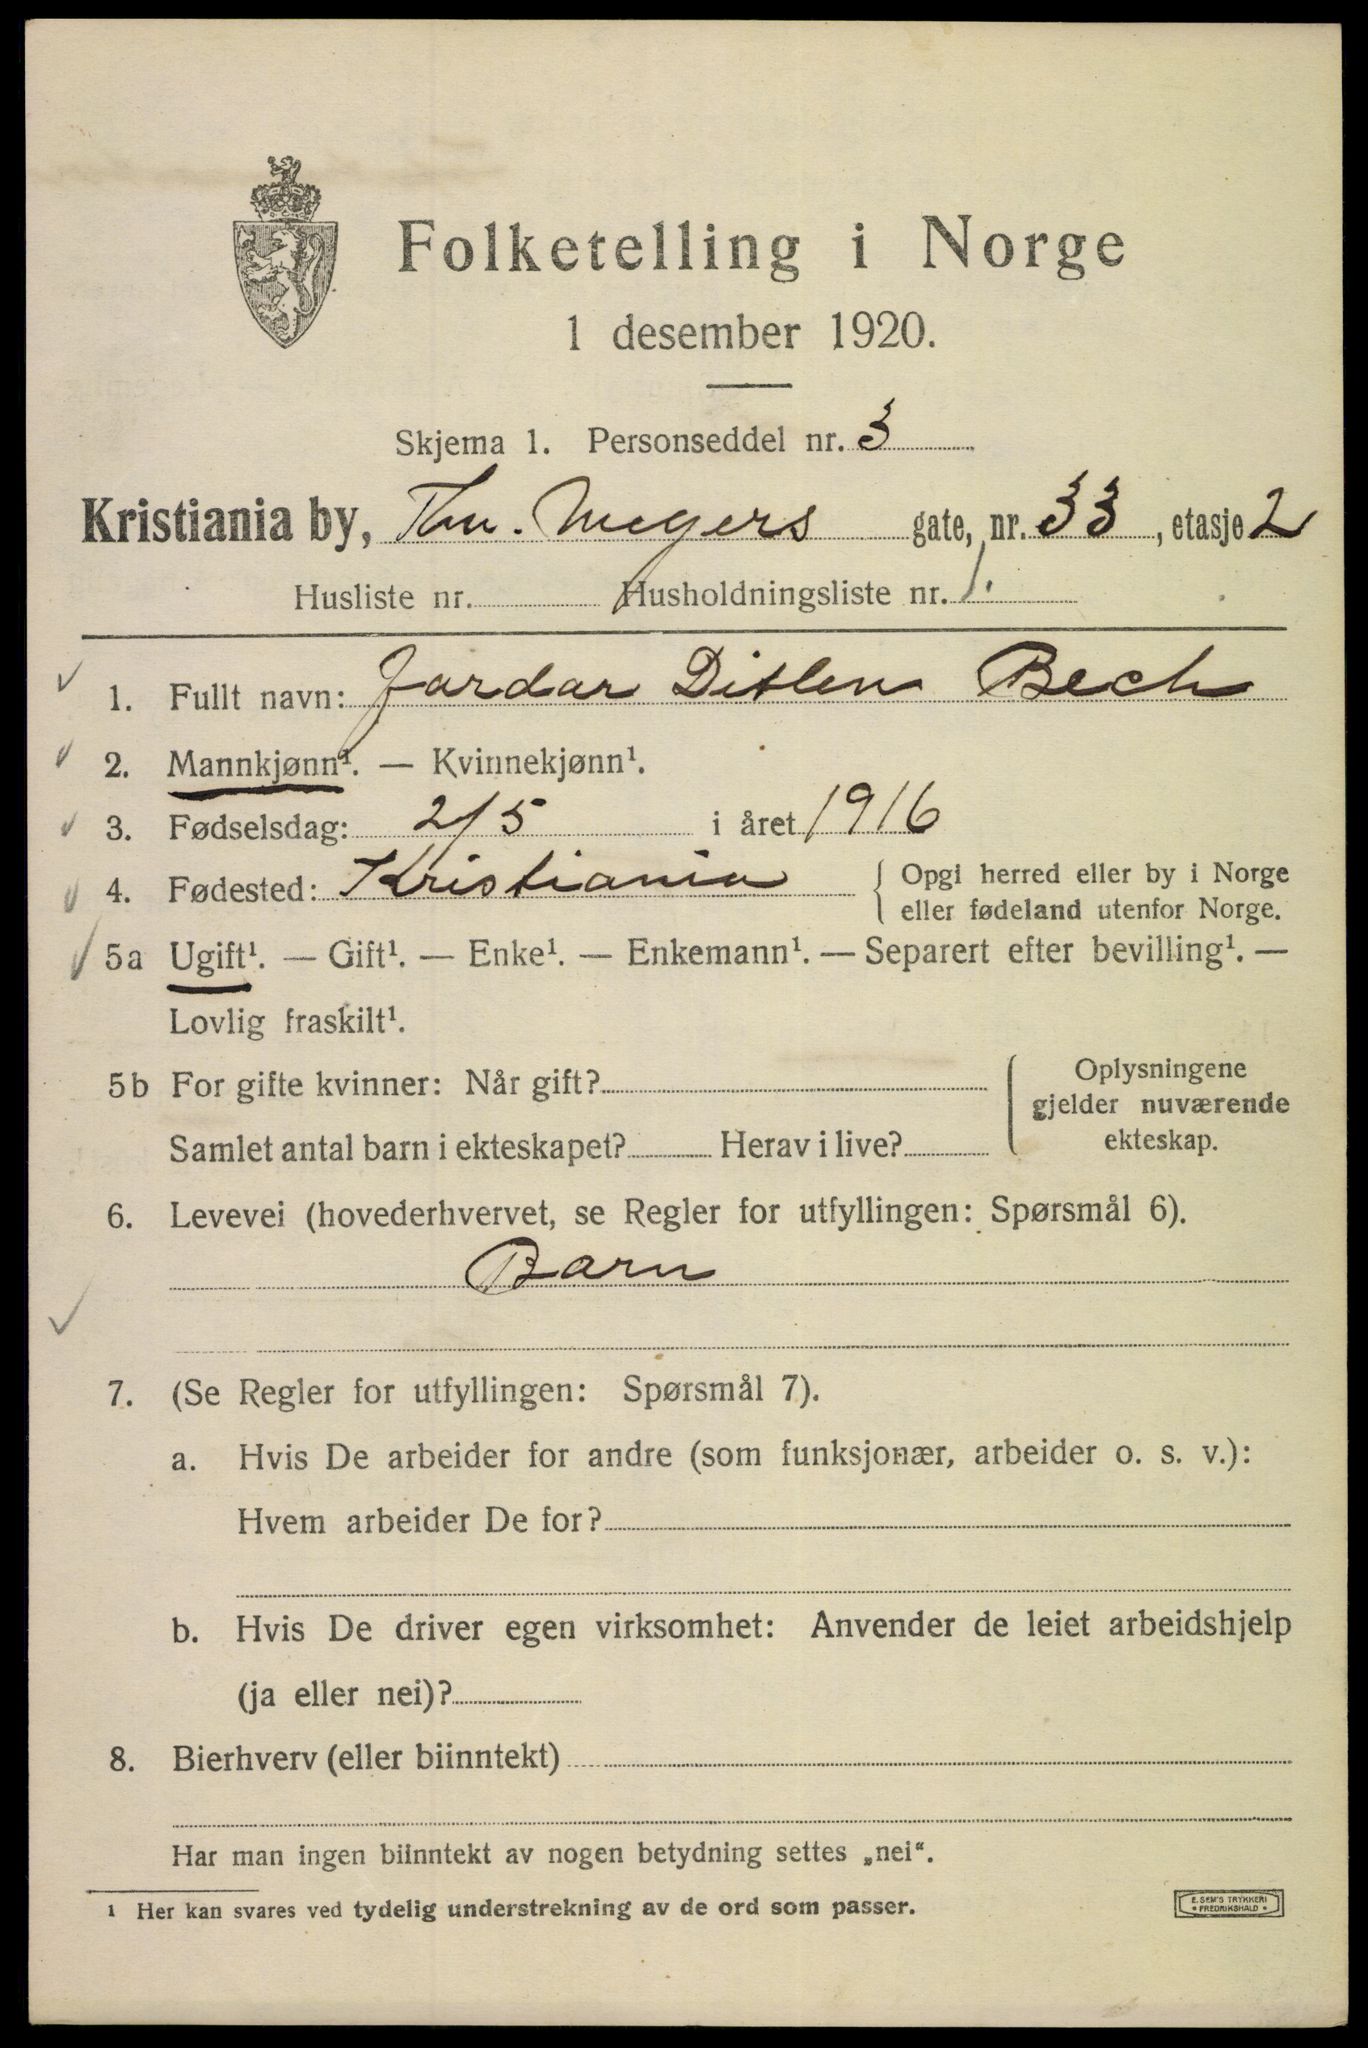 Folketelling i Norge
1 desember 1920.
Skjema 1. Personseddel nr. 3
Kristiania by, Thv. Meyers gate, nr. 33, etasje 2
Husliste nr. Husholdningsliste nr. 1.
1. Fullt navn: Jardar Ditlev Bech
2. Mannkjønn¹. — Kvinnekjønn¹.
3. Fødselsdag: 2/5 i året 1916
4. Fødested: Kristiania { Opgi herred eller by i Norge
eller fødeland utenfor Norge.
5a Ugift¹. — Gift¹. — Enke¹. — Enkemann¹. — Separert efter bevilling¹. —
Lovlig fraskilt¹.
5b For gifte kvinner: Når gift? { Oplysningene
gjelder nuværende
Samlet antal barn i ekteskapet? Herav i live? ekteskap.
6. Levevei (hovederhvervet, se Regler for utfyllingen: Spørsmål 6).
Barn
7. (Se Regler for utfyllingen: Spørsmål 7).
a. Hvis De arbeider for andre (som funksjonær, arbeider o. s. v.):
Hvem arbeider De for?
b. Hvis De driver egen virksomhet: Anvender de leiet arbeidshjelp
(ja eller nei)?
8. Bierhverv (eller biinntekt)
Har man ingen biinntekt av nogen betydning settes „nei“.
¹ Her kan svares ved tydelig understrekning av de ord som passer.
E. SEM'S TRYKKERI
• FREDRIKSHALD •